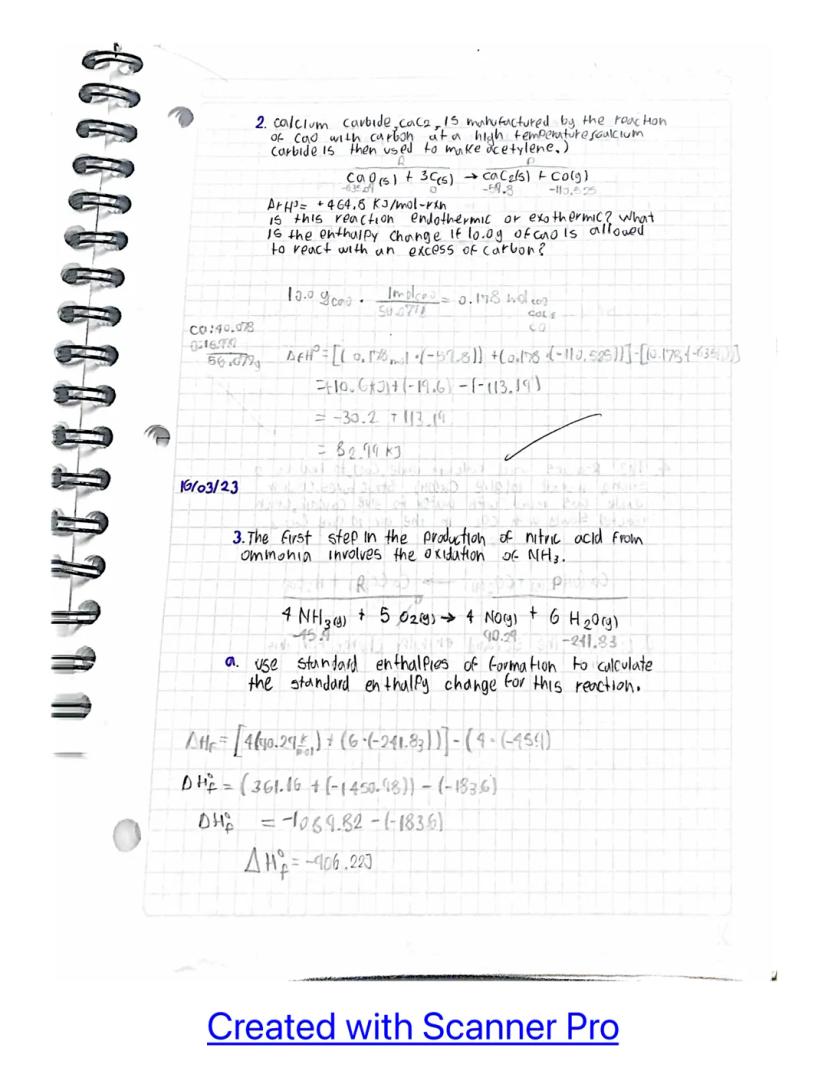 2. calcium carbide, CaC2, is manufactured by the reaction
of CaO with carbon at a high temperature (calcium
carbide is then used to make acetylene.)
R P
CaO(s) + 3C(s) → CaC2(s) + CO(g)
-635.09 0 -59.8 -110.525
ΔrH°= +464.8 KJ/mol-rxn
is this reaction endothermic or exothermic? What
is the enthalpy change if 10.0g of CaO is allowed
to react with an excess of carbon?
10.0 g CaO · 1mol CaO = 0.178 mol CaO
Ca: 40.078
56.079g
ΔfH°=[(0.178 mol ·(-59.8)) + (0.178 ·(-110.525))]-[(0.178 (-635.09)]
+(-19.6) -(-113.19)
= -30.2 + 113.19
= 82.99 KJ
16/03/23
3. The first step in the production of nitric acid from
ammonia involves the oxidation of NH3.
R P
4 NH3(g) + 5 O2(g) → 4 NO(g) + 6 H2O(g)
-45.9 0 90.29 -241.83
a. use standard enthalpies of formation to calculate
the standard enthalpy change for this reaction.
ΔHf = [4(90.29 KJ/mol) + (6·(-241.83))] - (4·(-45.9)
ΔH°f = (361.16 + (-1450.98)) - (-183.6)
ΔH°f = -1089.82 - (-183.6)
ΔH°f = -906.22J
Created with Scanner Pro